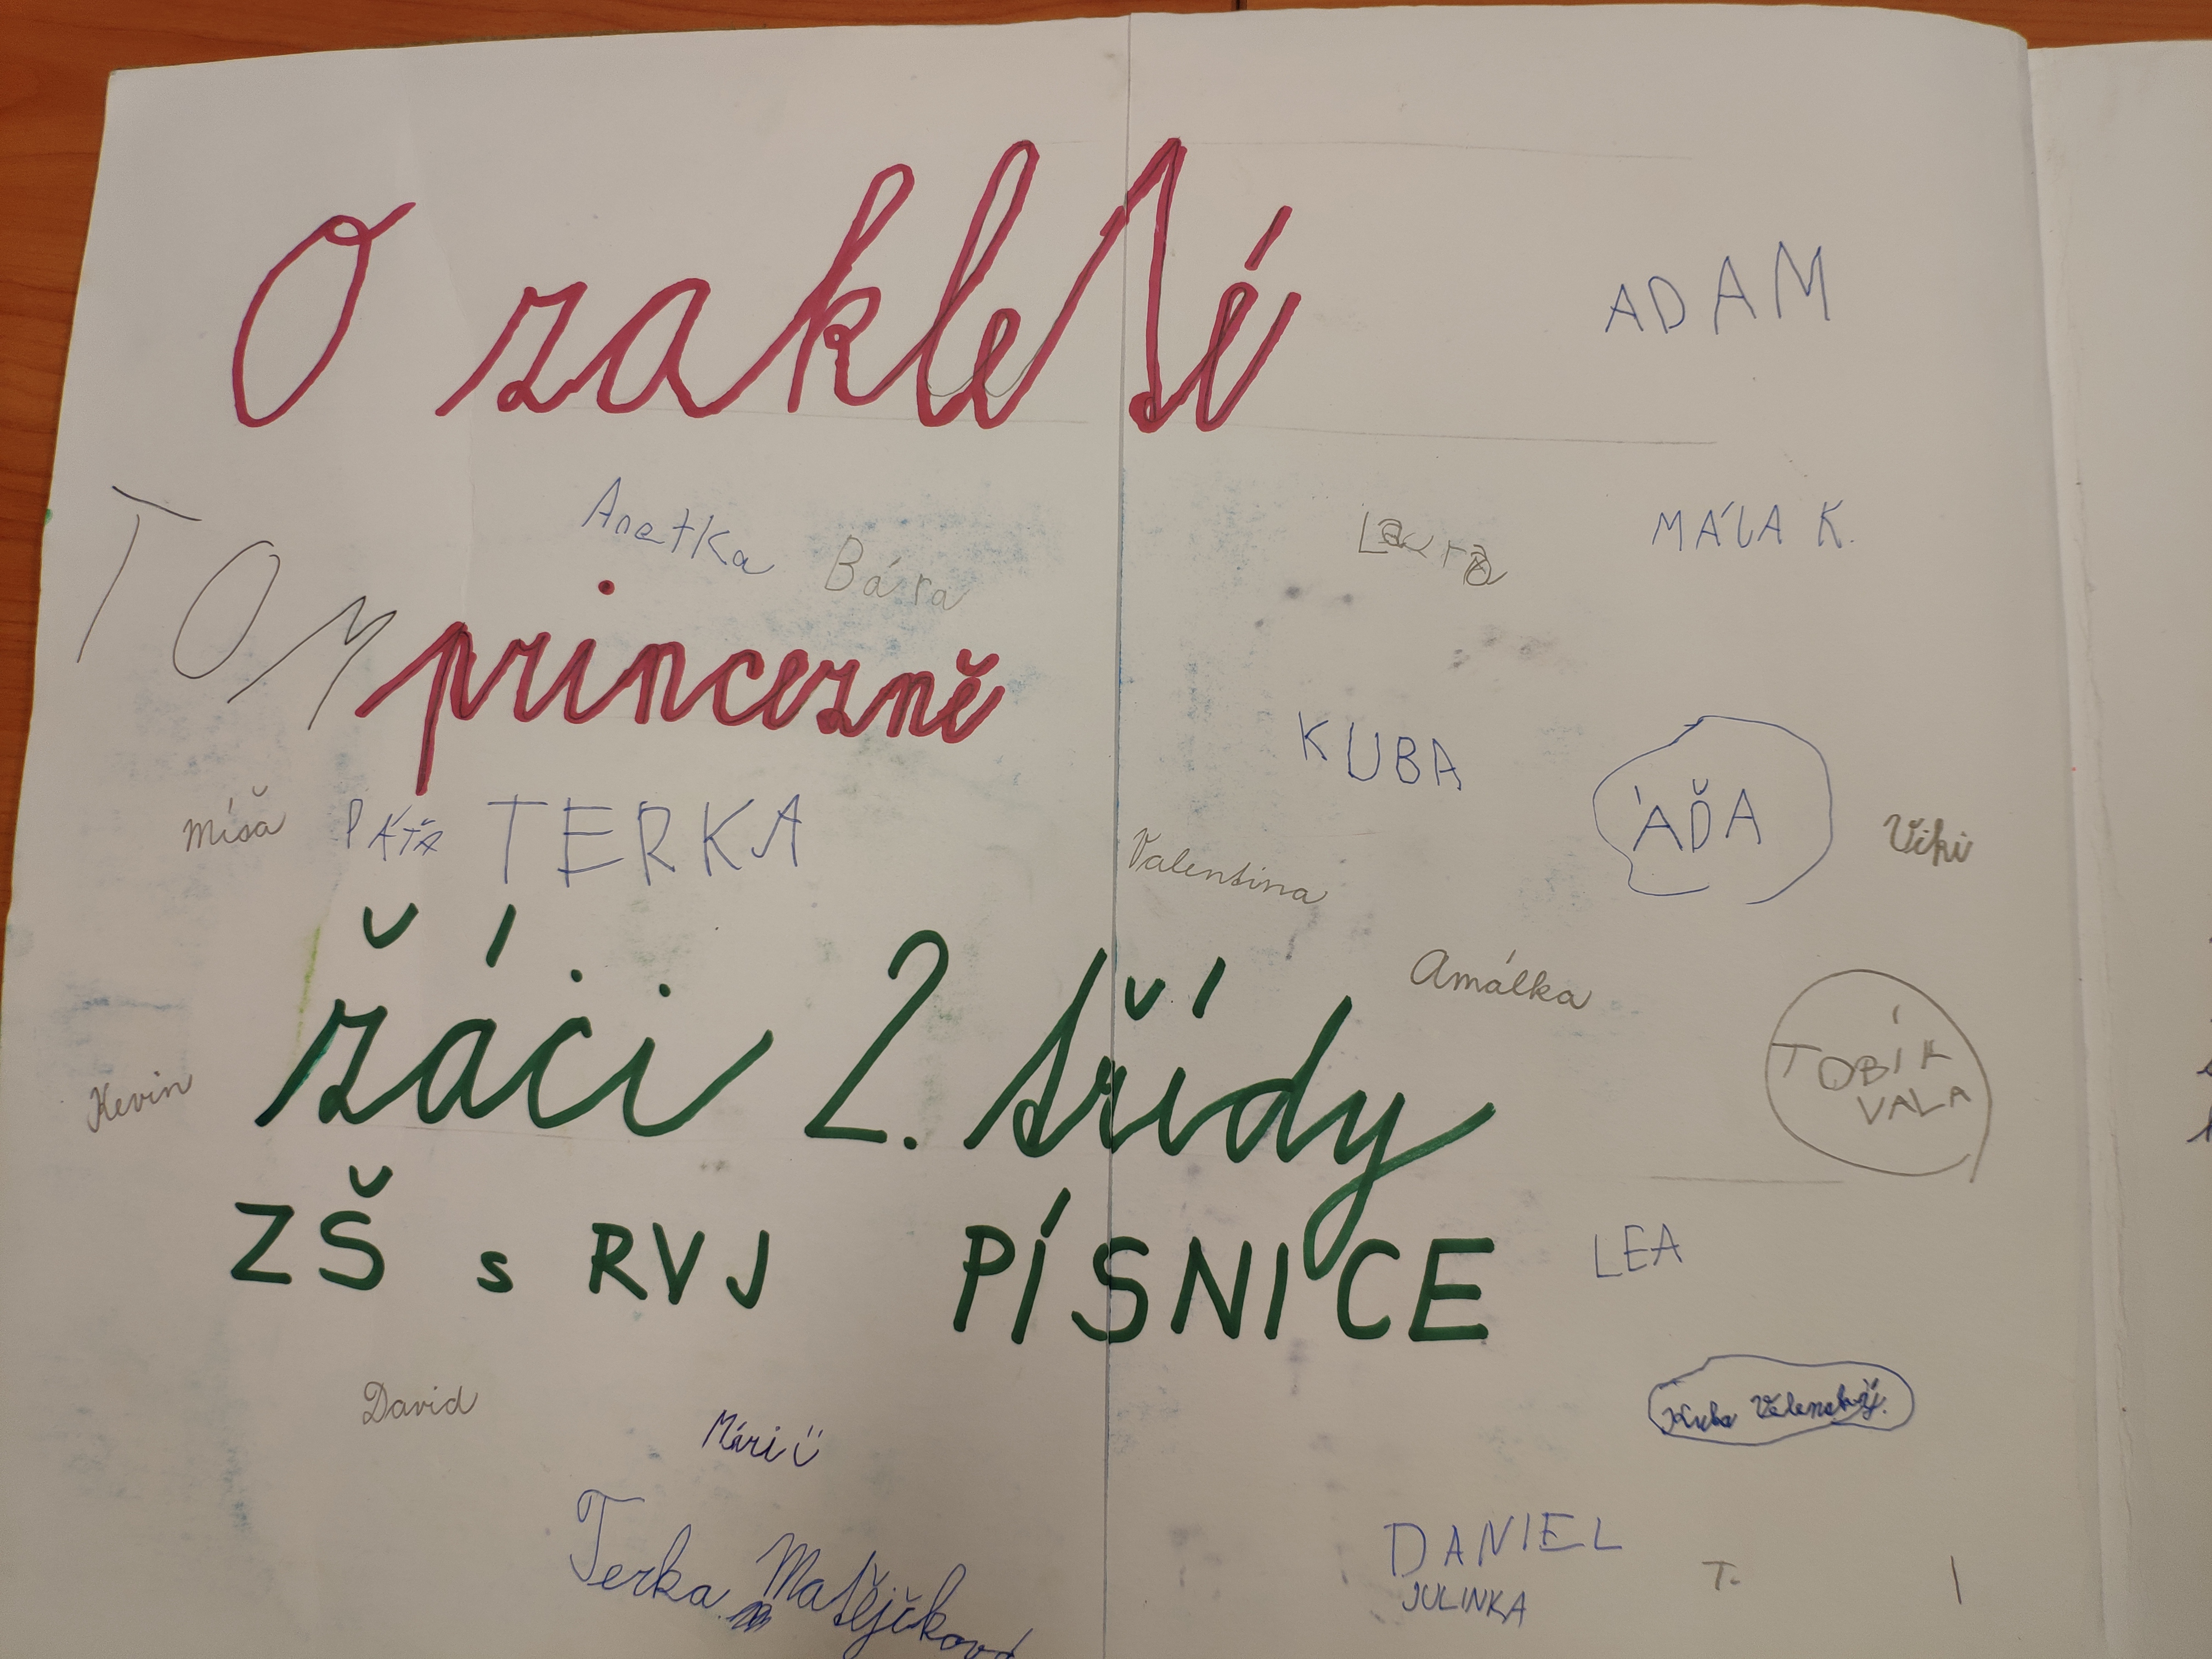 O zakleté
ADAM
Anetka Bára
Laura
MÁLA K.
TOM
princezně
KUBA
ÁĎA
Viki
Míša
PÁŤA
TERKA
Valentina
Amálka
žáci 2. třídy
TOBÍK
VALA
Kevin
ZŠ s RVJ PÍSNICE
LEA
David
Mári
Kuba
Terka Matějčková
DANIEL
JULINKA
T.